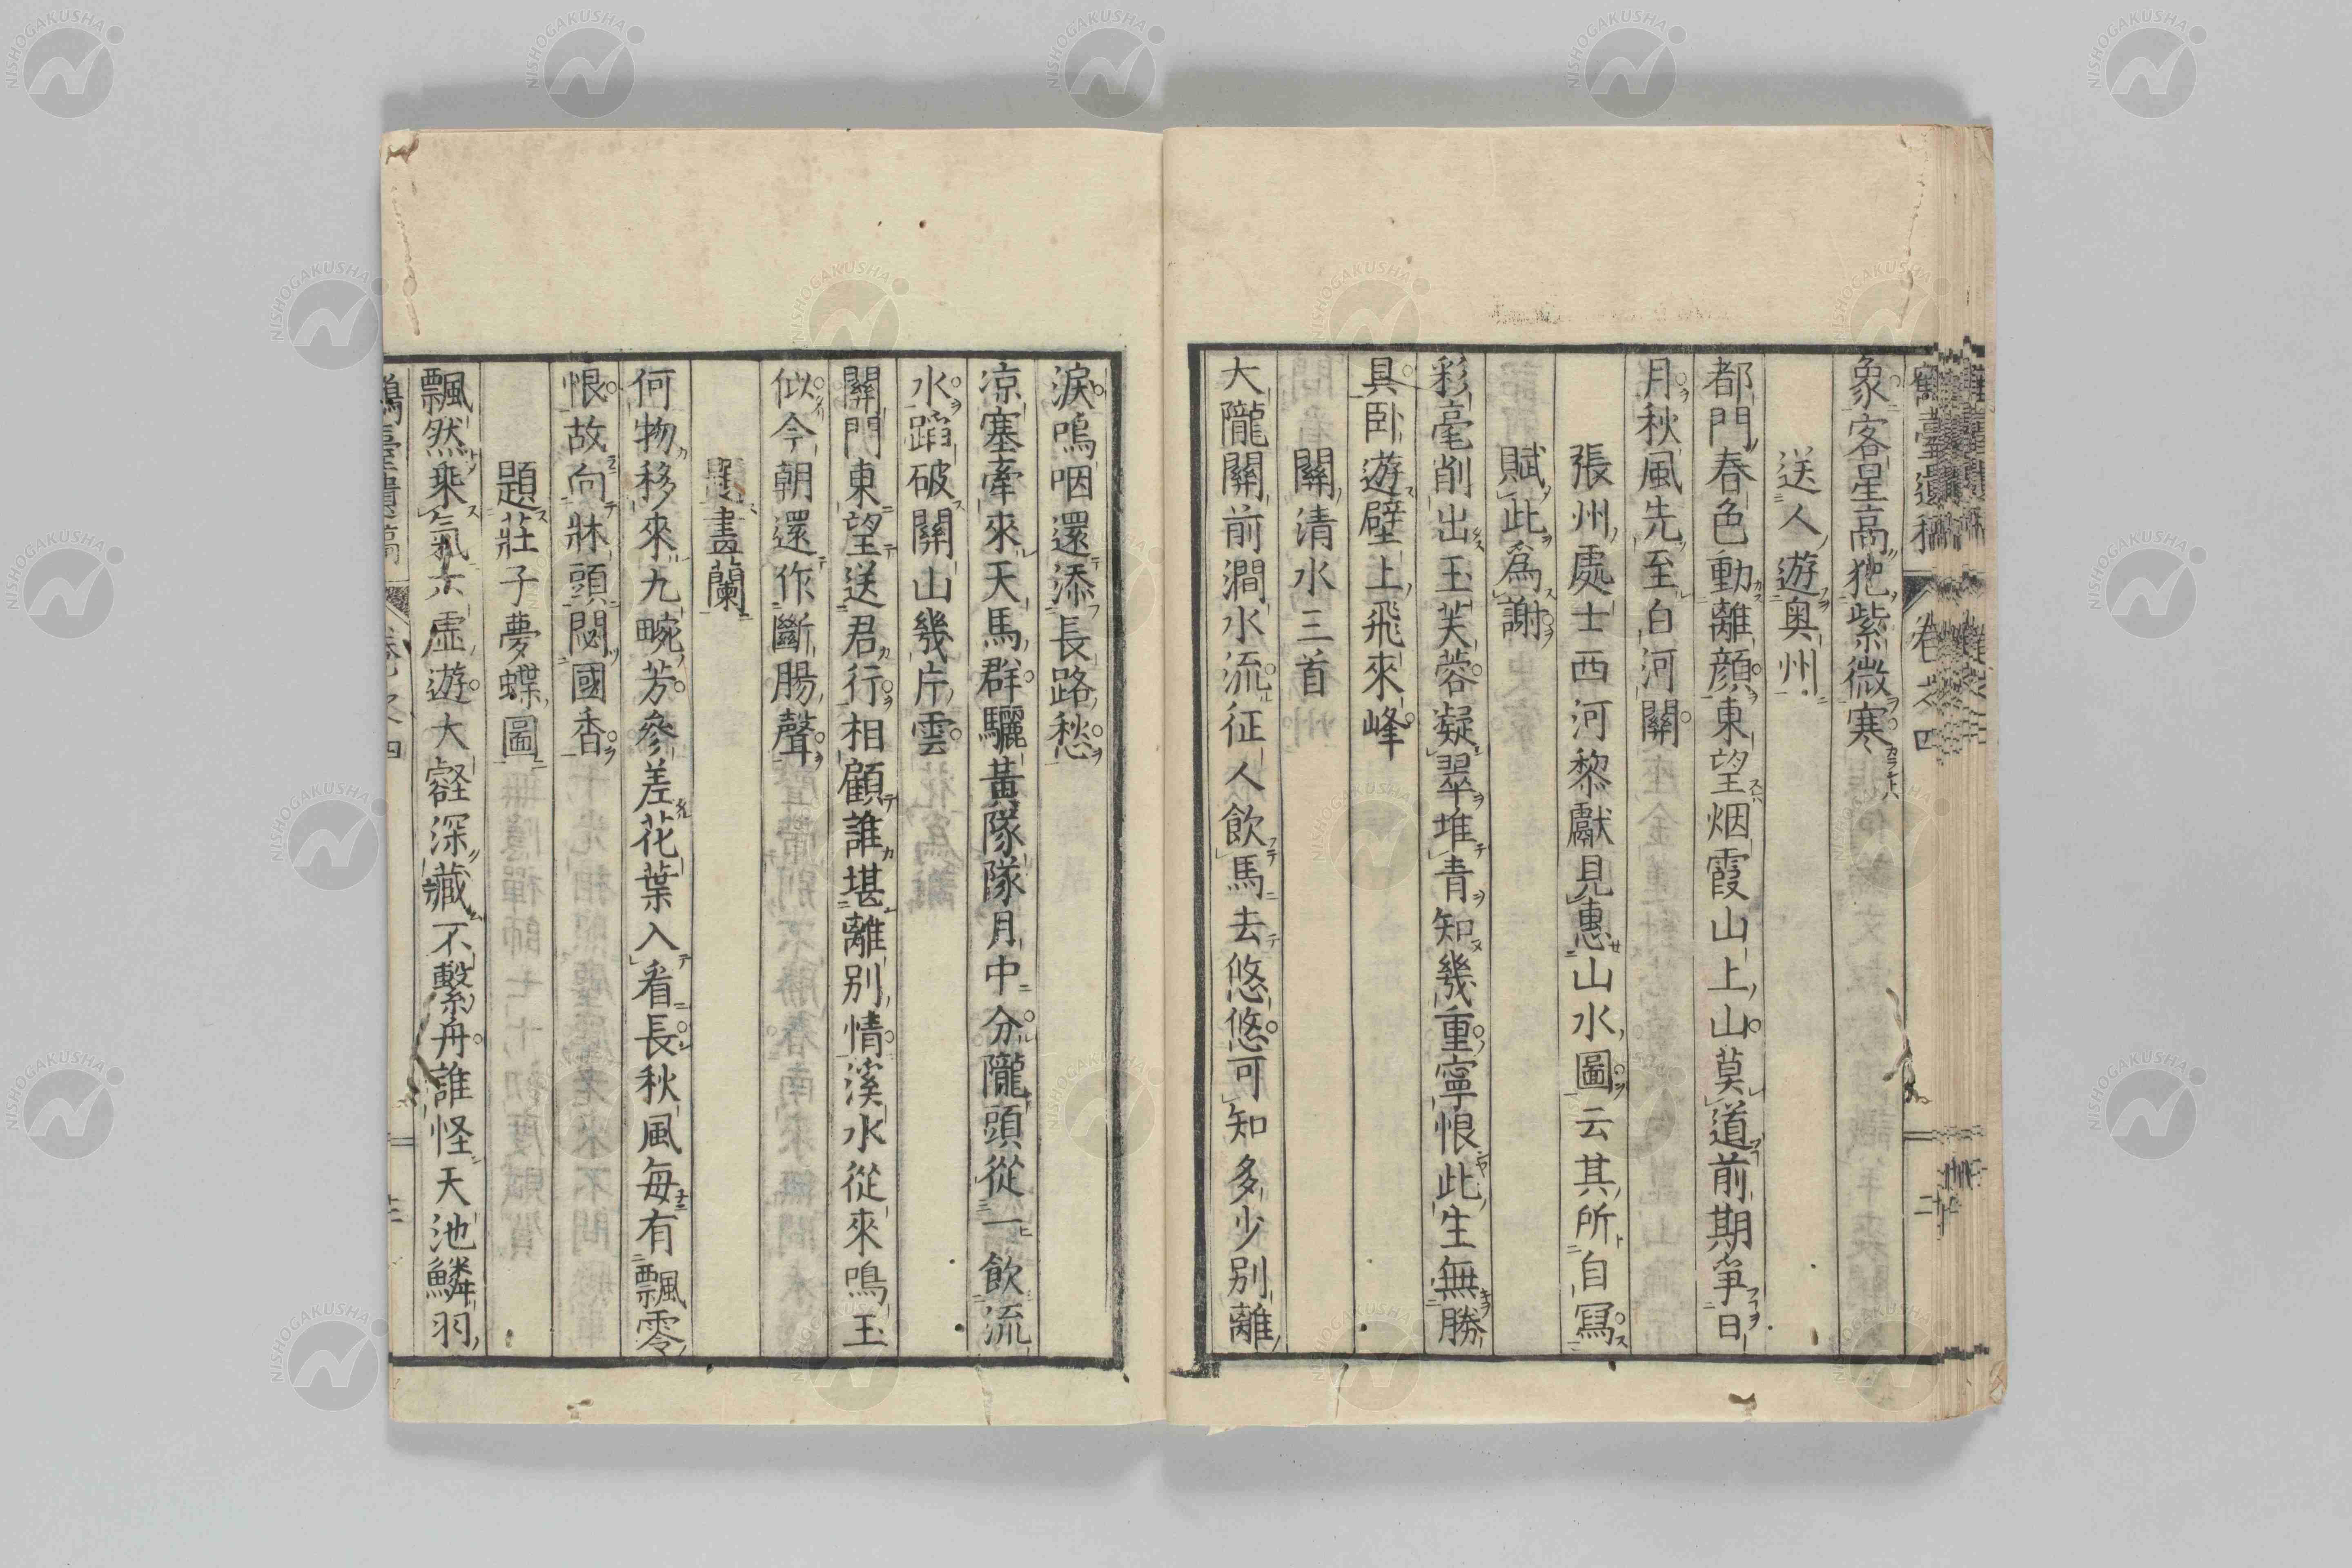 象客星高犯紫微寒
送人遊奥州
都門春色動離顔東望烟霞山上山莫道前期爭日
月秋風先至白河關
張州處士西河黎獻見惠山水圖云其所自冩
賦此爲謝
彩毫削出玉芙蓉凝翠堆青知幾重寧恨此生無勝
具卧遊壁上飛來峰
關清水三首
大隴關前澗水流征人飲馬去悠悠可知多少別離
淚嗚咽還添長路愁
凉塞牽來天馬群驪黃隊隊月中分隴頭從一飲流
水蹈破關山幾片雲
關門東望送君行相顧誰堪離別情溪水從來鳴玉
似今朝還作斷腸聲
題畫蘭
何物移來九畹芳參差花葉入看長秋風每有飄零
恨故向牀頭閟國香
題莊子夢蝶圖
飄然乘氣六虛遊大壑深藏不繫舟誰怪天池鱗羽